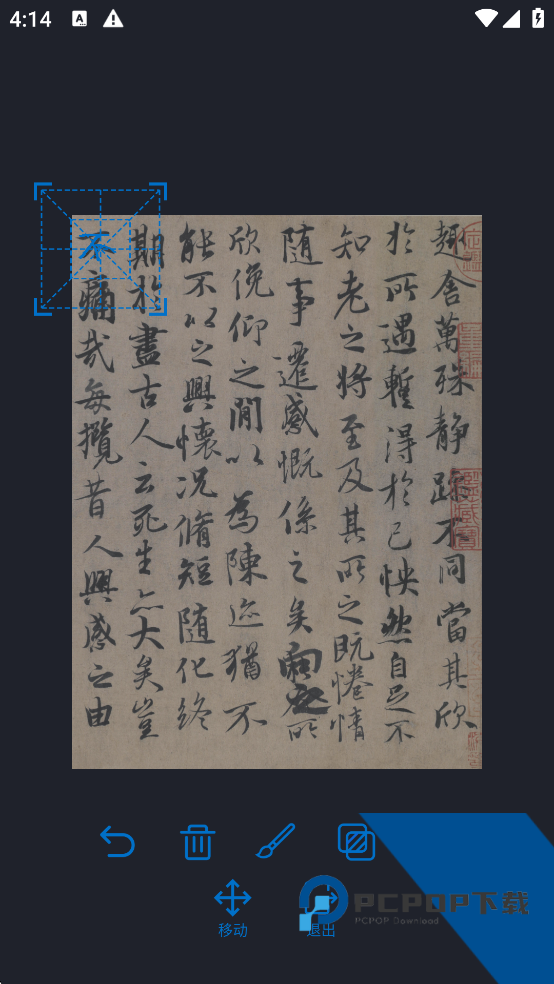 4:14
趣舍萬殊静躁不同當其欣
於所遇蹔得於己怏然自足不
知老之將至及其所之既惓情
隨事遷感慨係之矣向之所
欣俛仰之閒以為陳迹猶不
能不以之興懷况脩短隨化終
期於盡古人云死生亦大矣豈
不痛哉每攬昔人興感之由
移动
退出
PCPOP下载
PCPOP Download